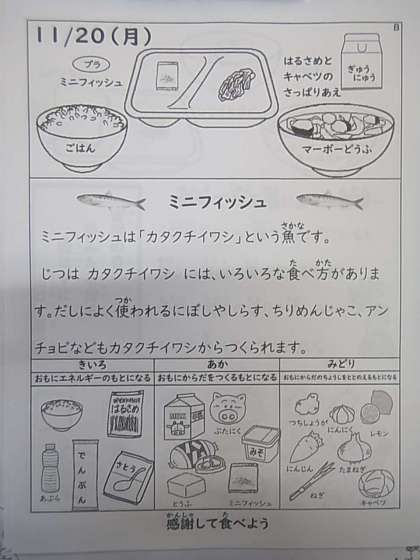 11/20(月)
B
プラ
ミニフィッシュ
はるさめと
キャベツの
さっぱりあえ
ぎゅう
にゅう
ごはん
マーボーどうふ
ミニフィッシュ
ミニフィッシュは「カタクチイワシ」という魚です。
さかな
じつは カタクチイワシ には、いろいろな食べ方がありま
た かた
す。だしによく使われるにぼしやしらす、ちりめんじゃこ、アン
つか
チョビなどもカタクチイワシからつくられます。
きいろ
あか
みどり
おもにエネルギーのもとになる
おもにからだをつくるもとになる
おもにからだのちょうしをととのえるもとになる
はるさめ
あぶら
でんぷん
さとう
ぶたにく
みそ
とうふ
ミニフィッシュ
つちしょうが
にんにく
レモン
にんじん
たまねぎ
ねぎ
キャベツ
かんしゃ た
感謝して食べよう